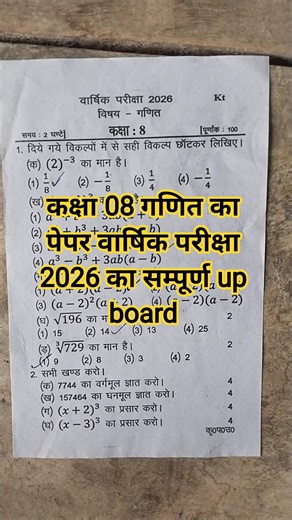 वार्षिक परीक्षा 2026 Kt
विषय - गणित
समय : 2 घण्टे कक्षा : 8 पूर्णांक : 100
1. दिये गये विकल्पों में से सही विकल्प छाँटकर लिखिए।
(क) (2)⁻³ का मान है।
(1) 1/8 (2) −1/8 (3) 1/4 (4) −1/4
(ख)
कक्षा 08 गणित का
पेपर वार्षिक परीक्षा
2026 का सम्पूर्ण up
board
(4) a³ − b³ + 3ab(a − b)
(3) (a − 2)²(a − 2)(a − 2)
(घ) √196 का 2
(1) 15 (2) 14 (3) 13 (4) 25
(ङ) ∛729 का मान है। 2
(1) 9 (2) 8 (3) 3 (4) 2
2. सभी खण्ड करो।
(क) 7744 का वर्गमूल ज्ञात करो। 4
(ख) 157464 का घनमूल ज्ञात करो। 4
(ग) (x + 2)³ का प्रसार करो। 4
(घ) (x − 3)³ का प्रसार करो। 4
कृ०प०उ०